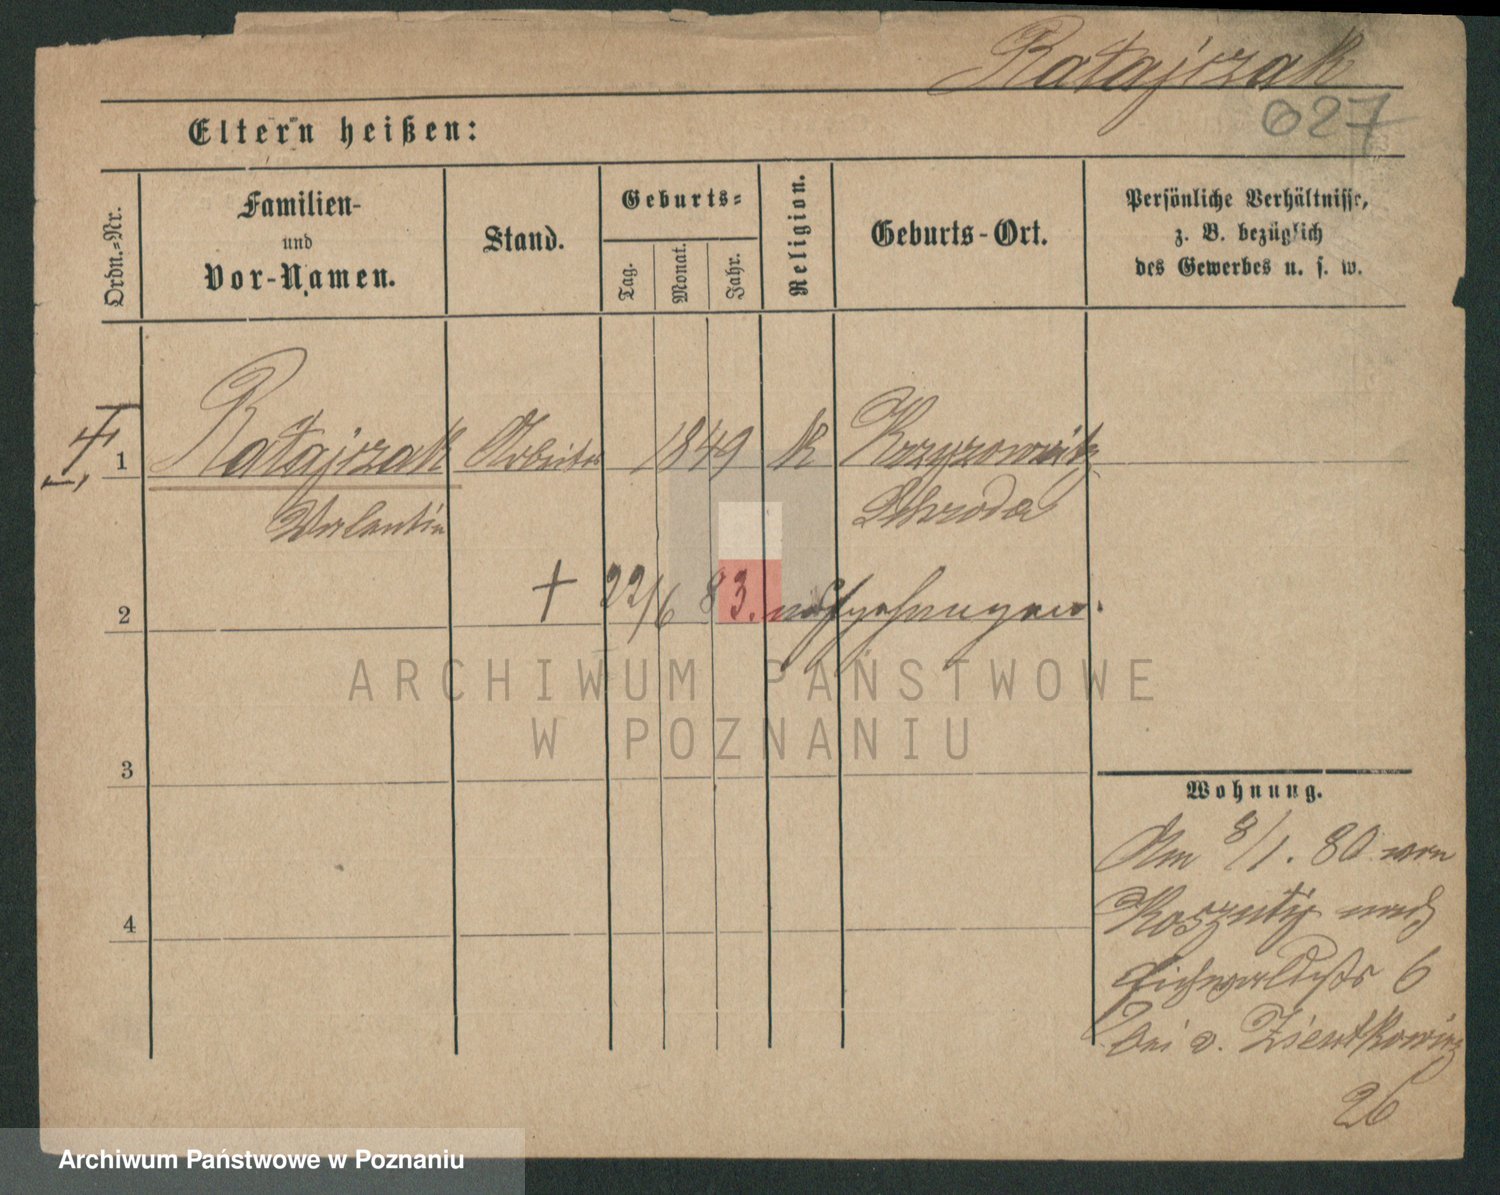 Ratajczak
027
Eltern heißen:
Ordn.-Nr.
Familien-
und
Vor-Namen.
Stand.
Geburts-
Tag.
Monat.
Jahr.
Religion.
Geburts-Ort.
Persönliche Verhältnisse,
z. B. bezüglich
des Gewerbes u. s. w.
1
Ratajczak Arbeiter 1849 K
Valentin Schroda
2 † 22/6 83.
ARCHIWUM PAŃSTWOWE
W POZNANIU
3
Wohnung.
Am 8/1. 80 von
4
Koszuty nach
Eichwaldstr 6
bei v.
26
Archiwum Państwowe w Poznaniu